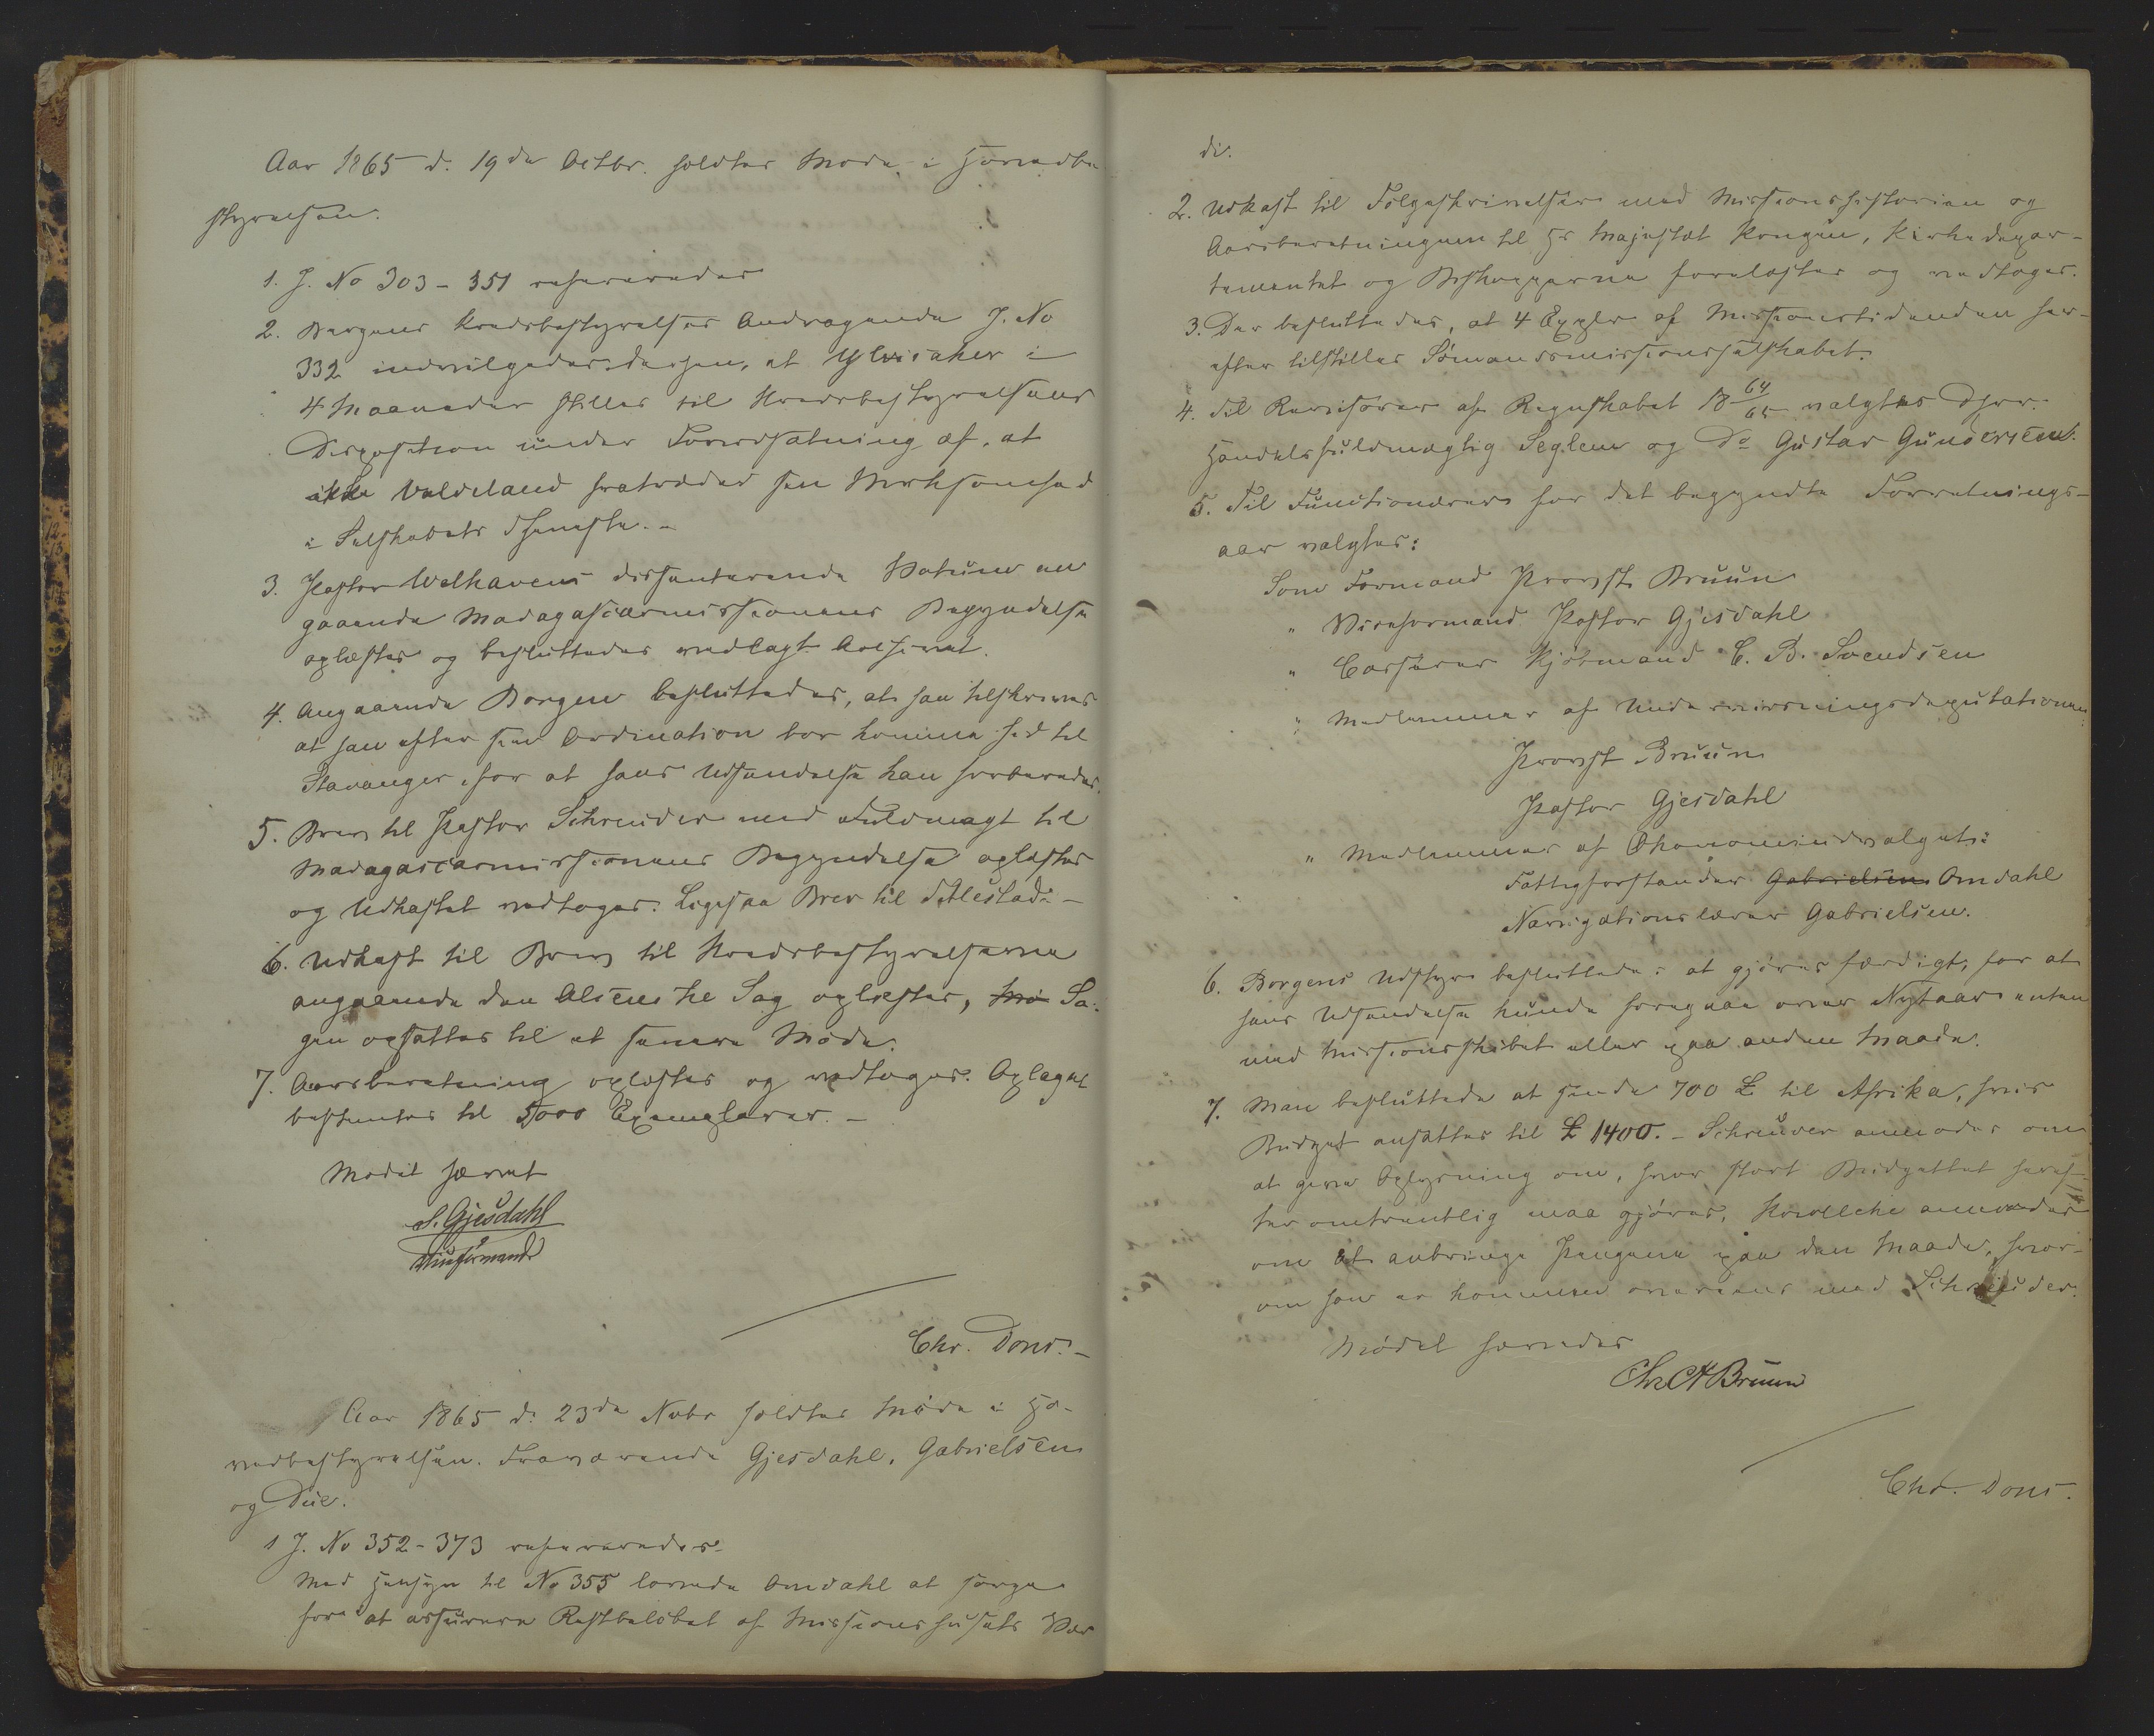 Aar 1865 d. 19de Octbr. holdtes Møde i Hovedbe
styrelsen.
1. J. No 303 - 351 refereredes
2. Bergens Kredsbestyrelses Andragende J. No
332 indvilgedes derhen, at Ylvisaker i
4 Maaneder stilles til Kredsbestyrelsens
Disposition under Forudsætning af, at
ikke Valdeland fratræder sin Virksomhed
i Selskabets Tjeneste. -
3. Pastor Welhavens dissenterende Votum an
gaaende Madagascarmissionens Begyndelse
oplæstes og besluttedes vedlagt Archivet.
4. Angaaende Borgen besluttedes, at han tilskrives
at han efter sin Ordination bør komme hid til
Stavanger, for at hans Udsendelse kan forberedes.
5. Brev til Pastor Schreuder med Fuldmagt til
Madagascarmissionens Begyndelse oplæstes
og Udkastet vedtoges. Ligesaa Brev til Udlestad. -
6. Udkast til Brev til Kredsbestyrelserne
angaaende den Alsenske Sag oplæstes, Mø Sa-
gen opsattes til et senere Møde.
7. Aarsberetning oplæstes og vedtoges. Oplaget
bestemtes til 5000 Exemplarer. -
Mødet hævet
S. Gjesdahl
Viceformand
Chr. Dons. -
Aar 1865 d. 23de Novbr holdtes Møde i Ho-
vedbestyrelsen. Fraværende Gjesdahl, Gabrielsen
og Due.
1 J. No 352 - 373 refereredes.
Med Hensyn til No 355 lovede Omdahl at sørge
for at assurere Restbeløbet af Missionshusets Vær
di.
2. Udkast til Følgeskrivelser med Missionshistorien og
Aarsberetningen til Hs Majestæt Kongen, Kirkedepar-
tementet og Biskopperne forelæstes og vedtoges.
3. Der besluttedes, at 4 Expler af Missionstidenden her-
efter tilstilles Sømandsmissionsselskabet.
4. Til Revisorer af Regnskabet 18 64/65 valgtes Dhrr.
Handelsfuldmægtig Seglem og Do Gustav Gundersen.
5. Til Functionærer for det begyndte Forretnings-
aar valgtes:
Som Formand Provst Bruun
" Viceformand Pastor Gjesdahl
" Casserer Kjøbmand C. B. Svendsen
" Medlemmer af Underviisningsdeputationen:
Provst Bruun
Pastor Gjesdahl
" Medlemmer af Økonomiudvalget:
Fattigforstander Gabrielsen Omdahl
Navigationslærer Gabrielsen.
6. Borgens Udstyr besluttedes at gjøres færdigt, for at
hans Udsendelse kunde foregaa over Nytaar enten
med Missionsskibet eller paa anden Maade.
7. Man besluttede at sende 700 £ til Afrika, hvis
Budget ansattes til £ 1400. - Schreuder anmodes om
at give Oplysning om, hvor stort Budgettet heref-
ter omtrentlig maa gjøres. Kowellche anmodes
om at anbringe Pengene paa den Maade, hvor-
om han er kommen overeens med Schreuder.
Mødet hævedes
Chr A Bruun
Chr. Dons.